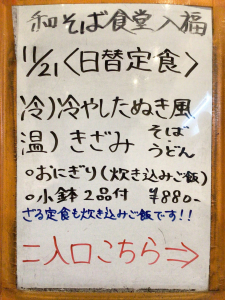 和そば食堂入福
11/21〈日替定食〉
冷)冷やしたぬき風
温)きざみ そば
うどん
○おにぎり(炊き込みご飯)
○小鉢2品付 ¥880-
ざる定食も炊き込みご飯です!!
入口こちら⇒